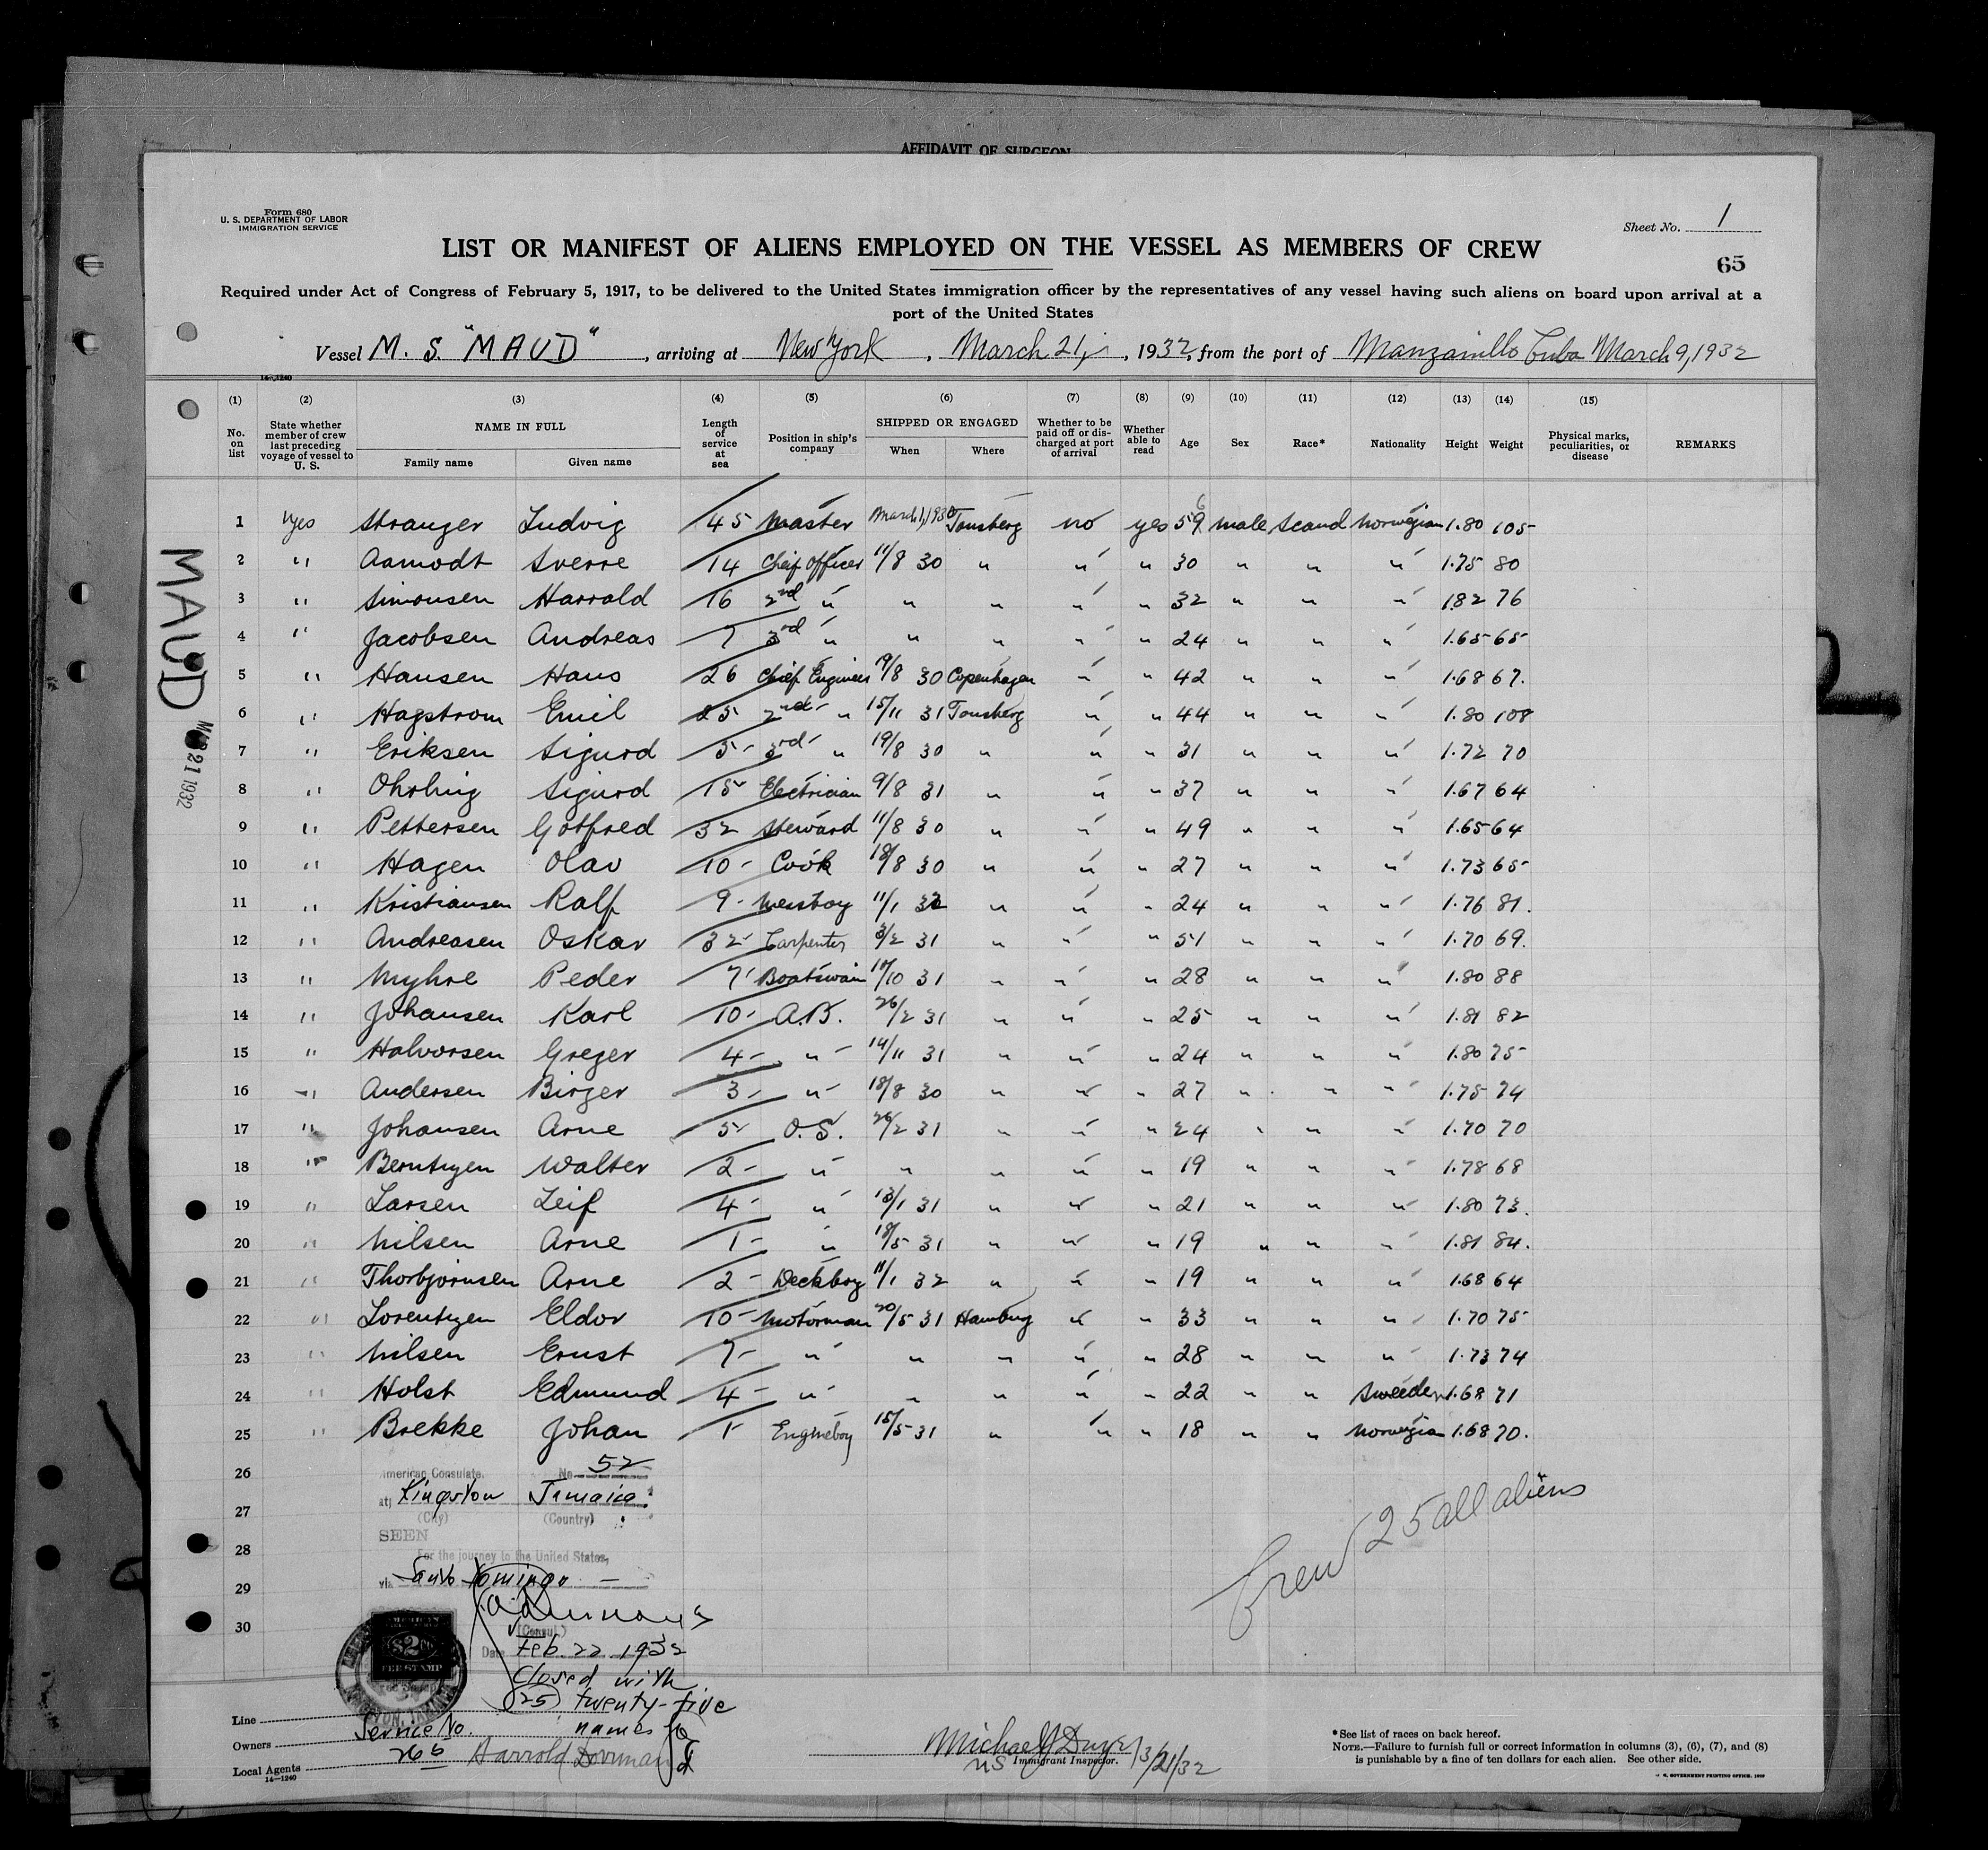 AFFIDAVIT OF SURGEON
Form 680
U. S. DEPARTMENT OF LABOR
IMMIGRATION SERVICE
Sheet No. 1
LIST OR MANIFEST OF ALIENS EMPLOYED ON THE VESSEL AS MEMBERS OF CREW
65
Required under Act of Congress of February 5, 1917, to be delivered to the United States immigration officer by the representatives of any vessel having such aliens on board upon arrival at a
port of the United States
Vessel M. S. "MAUD", arriving at New York, March 21, 1932, from the port of Manzanillo Cuba March 9, 1932
14-1240
(1) (2) (3) (4) (5) (6) (7) (8) (9) (10) (11) (12) (13) (14) (15)
No. on list State whether member of crew last preceding voyage of vessel to U. S. NAME IN FULL Family name Given name Length of service at sea Position in ship's company SHIPPED OR ENGAGED When Where Whether to be paid off or discharged at port of arrival Whether able to read Age Sex Race* Nationality Height Weight Physical marks, peculiarities, or disease REMARKS
1 yes Stranger Ludvig 45 Master March 1, 1930 Tonsberg no yes 59 male Scand Norwegian 1.80 105
2 " Aamodt Sverre 14 Cheif Officer 11/8 30 " " " 30 " " " 1.75 80
3 " Simonsen Harrald 16 2nd " " " " " 32 " " " 1.82 76
4 " Jacobsen Andreas 7 3rd " " " " " 24 " " " 1.65 65
5 " Hansen Hans 26 Chief Engineer 9/8 30 Copenhagen " " 42 " " " 1.68 67.
6 " Hagstrom Emil 25 2nd " 15/11 31 Tonsberg " " 44 " " " 1.80 108
7 " Eriksen Sigurd 5 3rd " 19/8 30 " " " 31 " " " 1.72 70
8 " Ohrling Sigurd 15 Electrician 9/8 31 " " " 37 " " " 1.67 64
9 " Pettersen Gotfred 32 Steward 11/8 30 " " " 49 " " " 1.65 64
10 " Hagen Olav 10 Cook 18/8 30 " " " 27 " " " 1.73 65
11 " Kristiansen Ralf 9 Messboy 11/1 32 " " " 24 " " " 1.76 81.
12 " Andreasen Oskar 32 Carpenter 3/2 31 " " " 51 " " " 1.70 69.
13 " Myhre Peder 7 Boatswain /10 31 " " " 28 " " " 1.80 88
14 " Johansen Karl 10 A.B. 26/2 31 " " " 25 " " " 1.81 82
15 " Halvorsen Greger 4 " 14/11 31 " " " 24 " " " 1.80 75
16 " Andersen Birger 3 " 18/8 30 " " " 27 " " " 1.75 74
17 " Johansen Arne 5 O.S. 26/2 31 " " " 24 " " " 1.70 70
18 " Berntzen Walter 2 " " " " " 19 " " " 1.78 68
19 " Larsen Leif 4 " 13/1 31 " " " 21 " " " 1.80 73.
20 " Nilsen Arne 1 " 18/5 31 " " " 19 " " " 1.81 84.
21 " Thorbjornsen Arne 2 Deckboy 11/1 32 " " " 19 " " " 1.68 64
22 " Lorentzen Eldor 10 Motorman 20/5 31 Hamburg " " 33 " " " 1.70 75
23 " Nilsen Ernst 7 " " " " " 28 " " " 1.73 74
24 " Holst Edmund 4 " " " " " 22 " " Sweeden 1.68 71
25 " Brekke Johan 1 Engineboy 15/5 31 " " " 18 " " Norwegian 1.68 70.
26
27
28
29
30
MAUD
MAR 21 1932
American Consulate, No. 52
at Kingston Jamaica
(City) (Country)
SEEN
For the journey to the United States,
via Santo Domingo
(Consul.)
Date Feb. 22 1932
Closed with
(25) twenty-five
names
Crew 25 all aliens
Line
Owners
Service No.
Local Agents
266
14-1240
U.S. Immigrant Inspector. 3/21/32
*See list of races on back hereof.
NOTE.—Failure to furnish full or correct information in columns (3), (6), (7), and (8)
is punishable by a fine of ten dollars for each alien. See other side.
GOVERNMENT PRINTING OFFICE